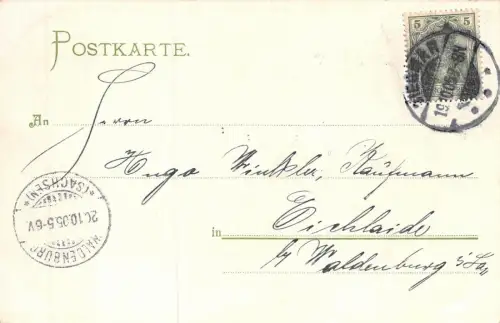 POSTKARTE.
5 5
19.10.05
An Herrn
Hugo Winkler, Kaufmann
in Eichlaide
b/ Waldenburg i/Sa.
WALDENBURG
*(SACHSEN)*
20.10.05.5-6V.